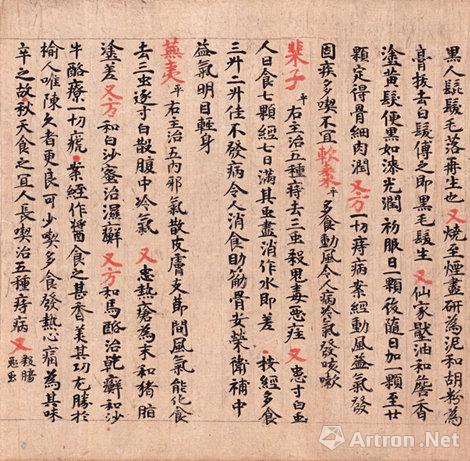 黑人髭髮毛落再生也又燒至煙盡研為泥和胡粉為
膏拔去白髮傅之即黑毛髮生又仙家壓油和詹香
塗黃髮便黑如漆光潤初服日一顆後隨日加一顆至廿
顆定得骨細肉潤又方一切痔病案經動風益氣發
固疾多喫不宜軟棗平多食動風令人病冷氣發咳嗽
棐子平右主治五種痔去三虫殺鬼毒惡疰又患寸白虫
人日食七顆經七日滿其虫盡消作水即差按經多食
三升二升佳不發病令人消食助筋骨安榮衛補中
益氣明目輕身
蕪荑平右主治五內邪氣散皮膚支節間風氣能化食
去三虫逐寸白散腹中冷氣又患熱瘡為末和猪脂
塗差又方和白沙蜜治濕癬又方和馬酪治乾癬和沙
牛酪療一切瘡案經作醬食之甚香美其功尤勝於
榆人唯陳久者更良可少喫多食發熱心痛為其味
辛之故秋天食之宜人長喫治五種痔病又殺腸惡虫
Artron.Net